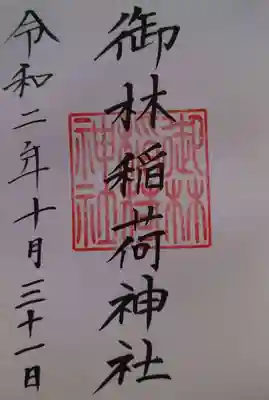 御林稲荷神社
御林稲荷神社
令和二年十月三十一日